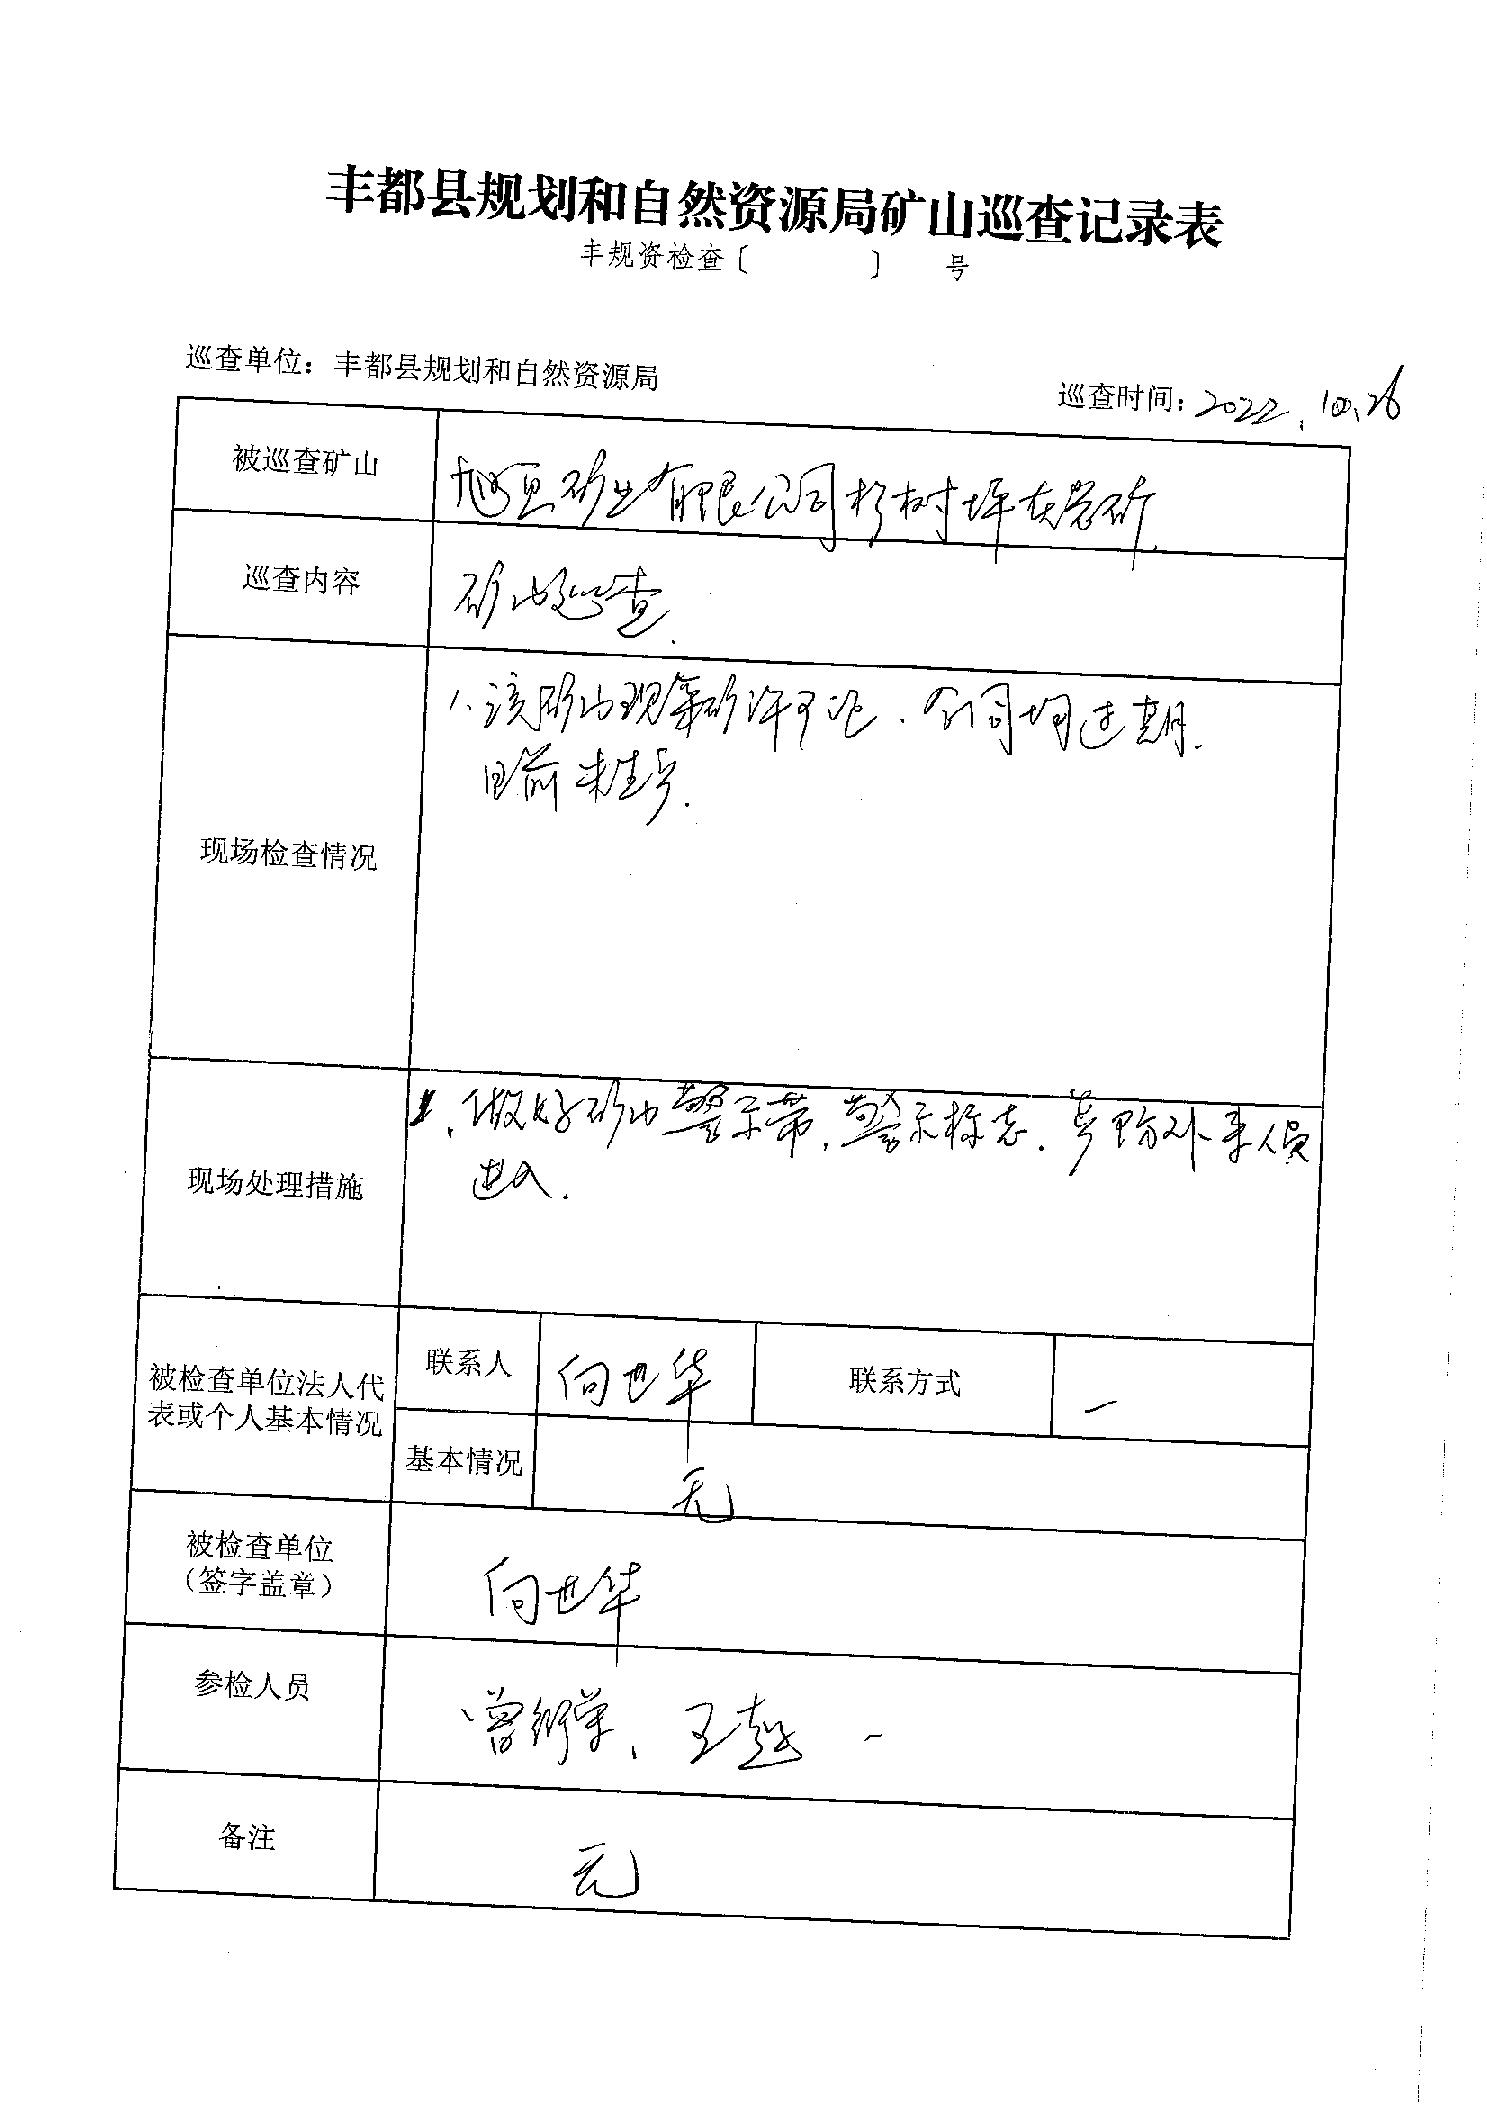 丰都县规划和自然资源局矿山巡查记录表
丰规资检查〔 〕 号
巡查单位：丰都县规划和自然资源局 巡查时间：2022.10.26
被巡查矿山 矿业有限公司杉树坪灰岩矿.
巡查内容 矿山巡查.
1、该矿山现采矿许可证、合同均过期.
目前未生产.
现场检查情况
1、做好矿山警示带,警示标志.严防外来人员
现场处理措施 进入.
被检查单位法人代
表或个人基本情况
联系人 向世华 联系方式 一
基本情况 无
被检查单位
（签字盖章） 向世华
参检人员 曾 荣、王越 一
备注 无